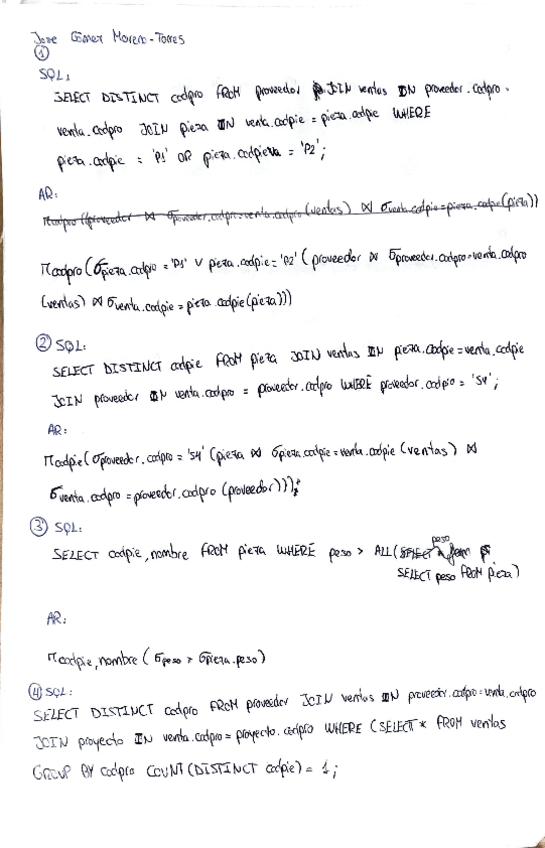 Jose Gómez Moreno-Torres
①
SQL:
SELECT DISTINCT codpro FROM proveedor JOIN ventas ON proveedor.codpro =
venta.codpro JOIN pieza ON venta.codpie = pieza.codpie WHERE
pieza.codpie = 'P1' OR pieza.codpieza = 'P2';
AR:
πcodpro((proveedor ⋈ σproveedor.codpro=venta.codpro(ventas) ⋈ σventa.codpie=pieza.codpie(pieza))
πcodpro(σpieza.codpro = 'P1' ∨ pieza.codpie = 'P2' (proveedor ⋈ σproveedor.codpro=venta.codpro
(ventas) ⋈ σventa.codpie = pieza.codpie(pieza)))
② SQL:
SELECT DISTINCT codpie FROM pieza JOIN ventas IN pieza.codpie = venta.codpie
JOIN proveedor ON venta.codpro = proveedor.codpro WHERE proveedor.codpro = 'S4';
AR:
πcodpie(σproveedor.codpro = 'S4' (pieza ⋈ σpieza.codpie = venta.codpie (ventas) ⋈
σventa.codpro = proveedor.codpro (proveedor)));
③ SQL:
SELECT codpie, nombre FROM pieza WHERE peso > ALL(SELECT peso
SELECT peso FROM pieza)
AR:
πcodpie, nombre (σpeso > σpieza.peso)
④ SQL:
SELECT DISTINCT codpro FROM proveedor JOIN ventas ON proveedor.codpro = venta.codpro
JOIN proyecto IN venta.codpro = proyecto.codpro WHERE (SELECT * FROM ventas
GROUP BY codpro COUNT(DISTINCT codpie) = 1;